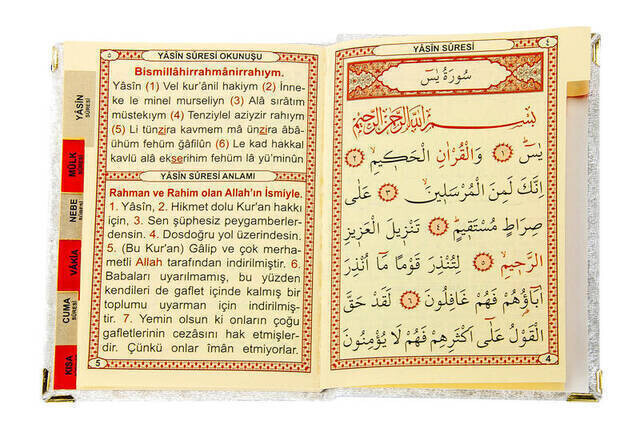 ٥
YÂSİN SÛRESİ OKUNUŞU
Bismillâhirrahmânirrahıym.
Yâsîn (1) Vel kur'ânil hakiym (2) İnne-
ke le minel murseliyn (3) Alâ sıratım
müstekıym (4) Tenziylel aziyzir rahıym
(5) Li tünzira kavmem mâ ünzira âbâ-
ühüm fehüm ğâfilûn (6) Le kad hakkal
kavlü alâ ekserihim fehüm lâ yü'minûn
YÂSİN SÛRESİ ANLAMI
Rahman ve Rahim olan Allah'ın İsmiyle.
1. Yâsîn, 2. Hikmet dolu Kur'an hakkı
için, 3. Sen şüphesiz peygamberler-
densin. 4. Dosdoğru yol üzerindesin.
5. (Bu Kur'an) Gâlip ve çok merha-
metli Allah tarafından indirilmiştir. 6.
Babaları uyarılmamış, bu yüzden
kendileri de gaflet içinde kalmış bir
toplumu uyarman için indirilmiş-
tir. 7. Yemin olsun ki onların çoğu
gafletlerinin cezasını hak etmişler-
dir. Çünkü onlar îmân etmiyorlar.
5
YÂSİN SÛRESİ
MÜLK SÛRESİ
NEBE SÛRESİ
VÂKIA
CUMA SÛRESİ
KISA
YÂSİN SÛRESİ
٤
سُورَةُ يٰسٓ
بِسْمِ اللّٰهِ الرَّحْمٰنِ الرَّحِيمِ
يٰسٓ ﴿١﴾ وَالْقُرْاٰنِ الْحَكِيمِۙ ﴿٢﴾
اِنَّكَ لَمِنَ الْمُرْسَلِينَۙ ﴿٣﴾ عَلٰى
صِرَاطٍ مُسْتَقِيمٍۜ ﴿٤﴾ تَنْزِيلَ الْعَزِيزِ
الرَّحِيمِۙ ﴿٥﴾ لِتُنْذِرَ قَوْمًا مَٓا اُنْذِرَ
اٰبَٓاؤُ۬هُمْ فَهُمْ غَافِلُونَ ﴿٦﴾ لَقَدْ حَقَّ
الْقَوْلُ عَلٰٓى اَكْثَرِهِمْ فَهُمْ لَا يُؤْمِنُونَ
4